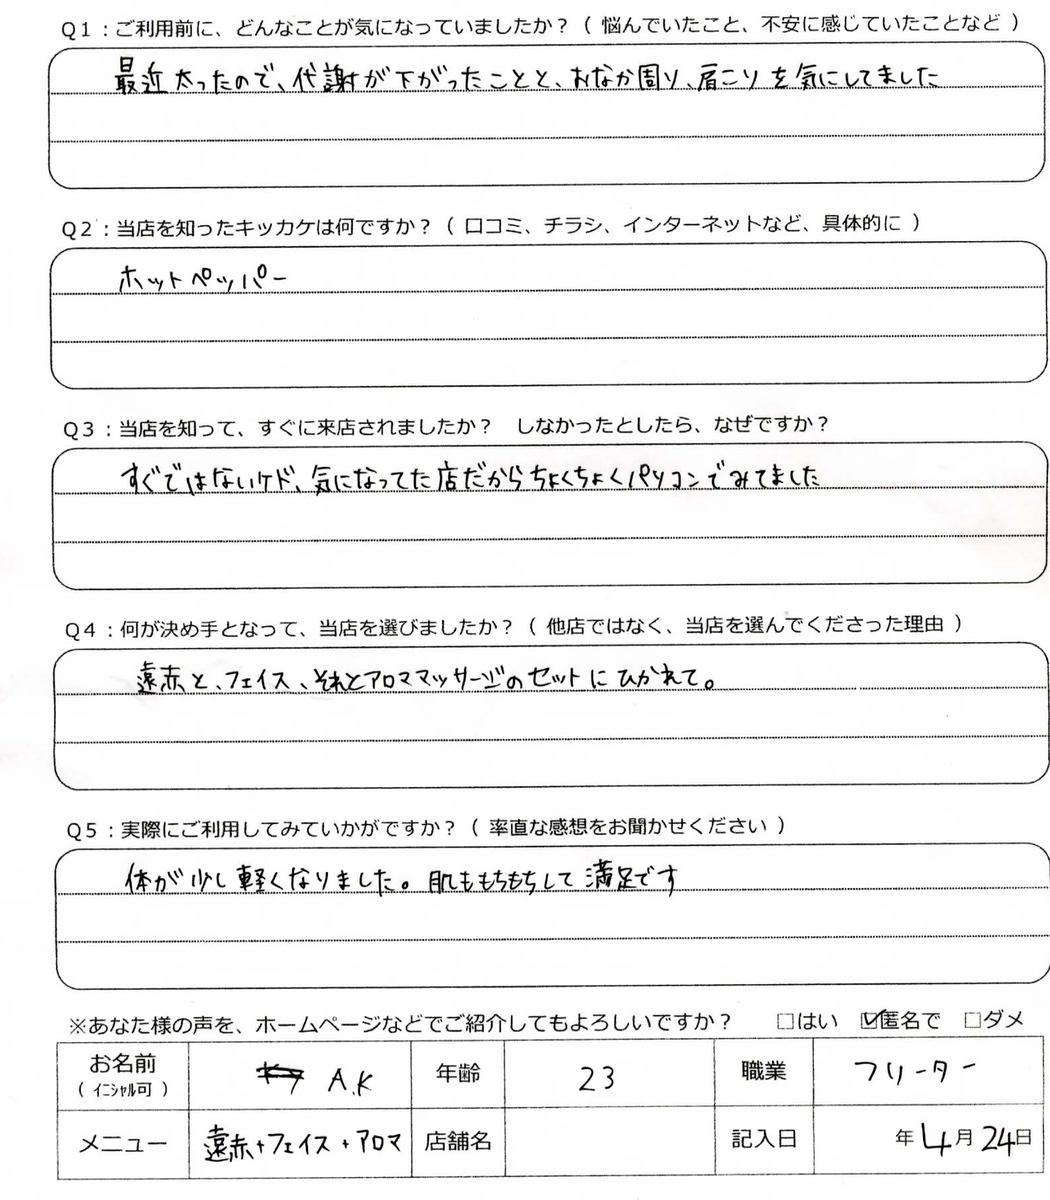 Q1：ご利用前に、どんなことが気になっていましたか？（ 悩んでいたこと、不安に感じていたことなど ）
最近太ったので、代謝が下がったことと、おなか周り、肩こりを気にしてました
Q2：当店を知ったキッカケは何ですか？（ 口コミ、チラシ、インターネットなど、具体的に ）
ホットペッパー
Q3：当店を知って、すぐに来店されましたか？　しなかったとしたら、なぜですか？
すぐではないケド、気になってた店だからちょくちょくパソコンでみてました
Q4：何が決め手となって、当店を選びましたか？（ 他店ではなく、当店を選んでくださった理由 ）
遠赤と、フェイス、それとアロママッサージのセットにひかれて。
Q5：実際にご利用してみていかがですか？（ 率直な感想をお聞かせください ）
体が少し軽くなりました。肌ももちもちして満足です
※あなた様の声を、ホームページなどでご紹介してもよろしいですか？　□はい　☑匿名で　□ダメ
お名前　A.K　年齢　23　職業　フリーター
（ ｲﾆｼｬﾙ可 ）
メニュー　遠赤+フェイス+アロマ　店舗名　記入日　年4月24日